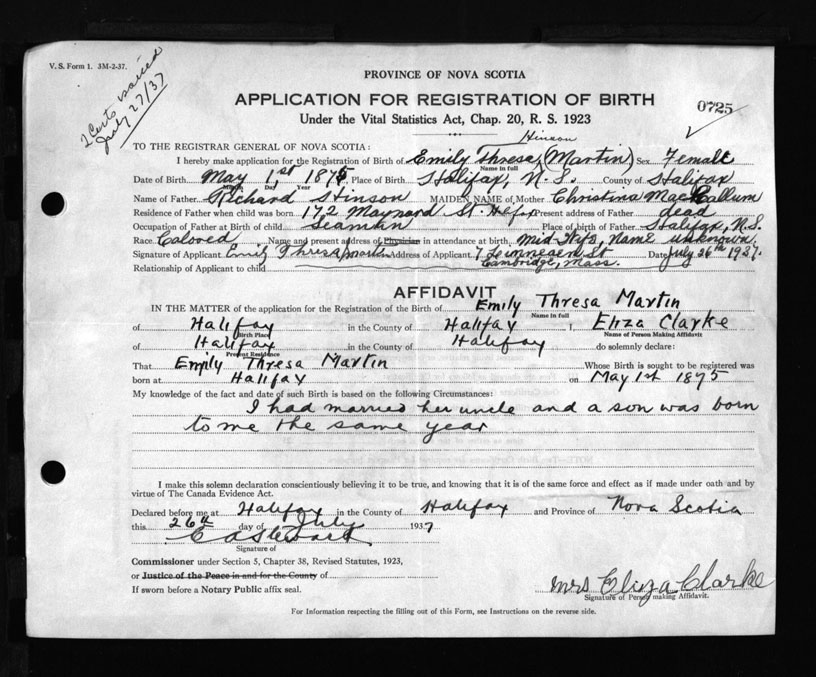 V. S. Form 1. 3M-2-37.
2 Certs issued
July 27/37
PROVINCE OF NOVA SCOTIA
APPLICATION FOR REGISTRATION OF BIRTH
0725
Under the Vital Statistics Act, Chap. 20, R. S. 1923
TO THE REGISTRAR GENERAL OF NOVA SCOTIA: Hinson
I hereby make application for the Registration of Birth of Emily Thresa (Martin) Sex Female
Name in full
Date of Birth May 1st 1875 Place of Birth Halifax, N. S. County of Halifax
Month Day Year
Name of Father Richard Hinson MAIDEN NAME of Mother Christina MacCallum
Residence of Father when child was born 172 Maynard St. Hfx Present address of Father dead
Occupation of Father at Birth of child Seaman Place of birth of Father Halifax, N.S.
Race Colored Name and present address of Physician in attendance at birth, mid wife, Name unknown
Signature of Applicant Emily Thresa Martin Address of Applicant 7 St Date July 26th 1937.
Relationship of Applicant to child Cambridge, Mass.
AFFIDAVIT
IN THE MATTER of the application for the Registration of the Birth of Emily Thresa Martin
Name in full
of Halifax in the County of Halifax I, Eliza Clarke
Birth Place Name of Person Making Affidavit
of Halifax in the County of Halifax do solemnly declare:
Present Residence
That Emily Thresa Martin Whose Birth is sought to be registered was
born at Halifax on May 1st 1875
My knowledge of the fact and date of such Birth is based on the following Circumstances:
I had married her uncle and a son was born
to me the same year
I make this solemn declaration conscientiously believing it to be true, and knowing that it is of the same force and effect as if made under oath and by
virtue of The Canada Evidence Act.
Declared before me at Halifax in the County of Halifax and Province of Nova Scotia
this 26th day of July 1937
Signature of
Commissioner under Section 5, Chapter 38, Revised Statutes, 1923,
or Justice of the Peace in and for the County of
If sworn before a Notary Public affix seal.
Mrs Eliza Clarke
Signature of Person making Affidavit.
For Information respecting the filling out of this Form, see Instructions on the reverse side.